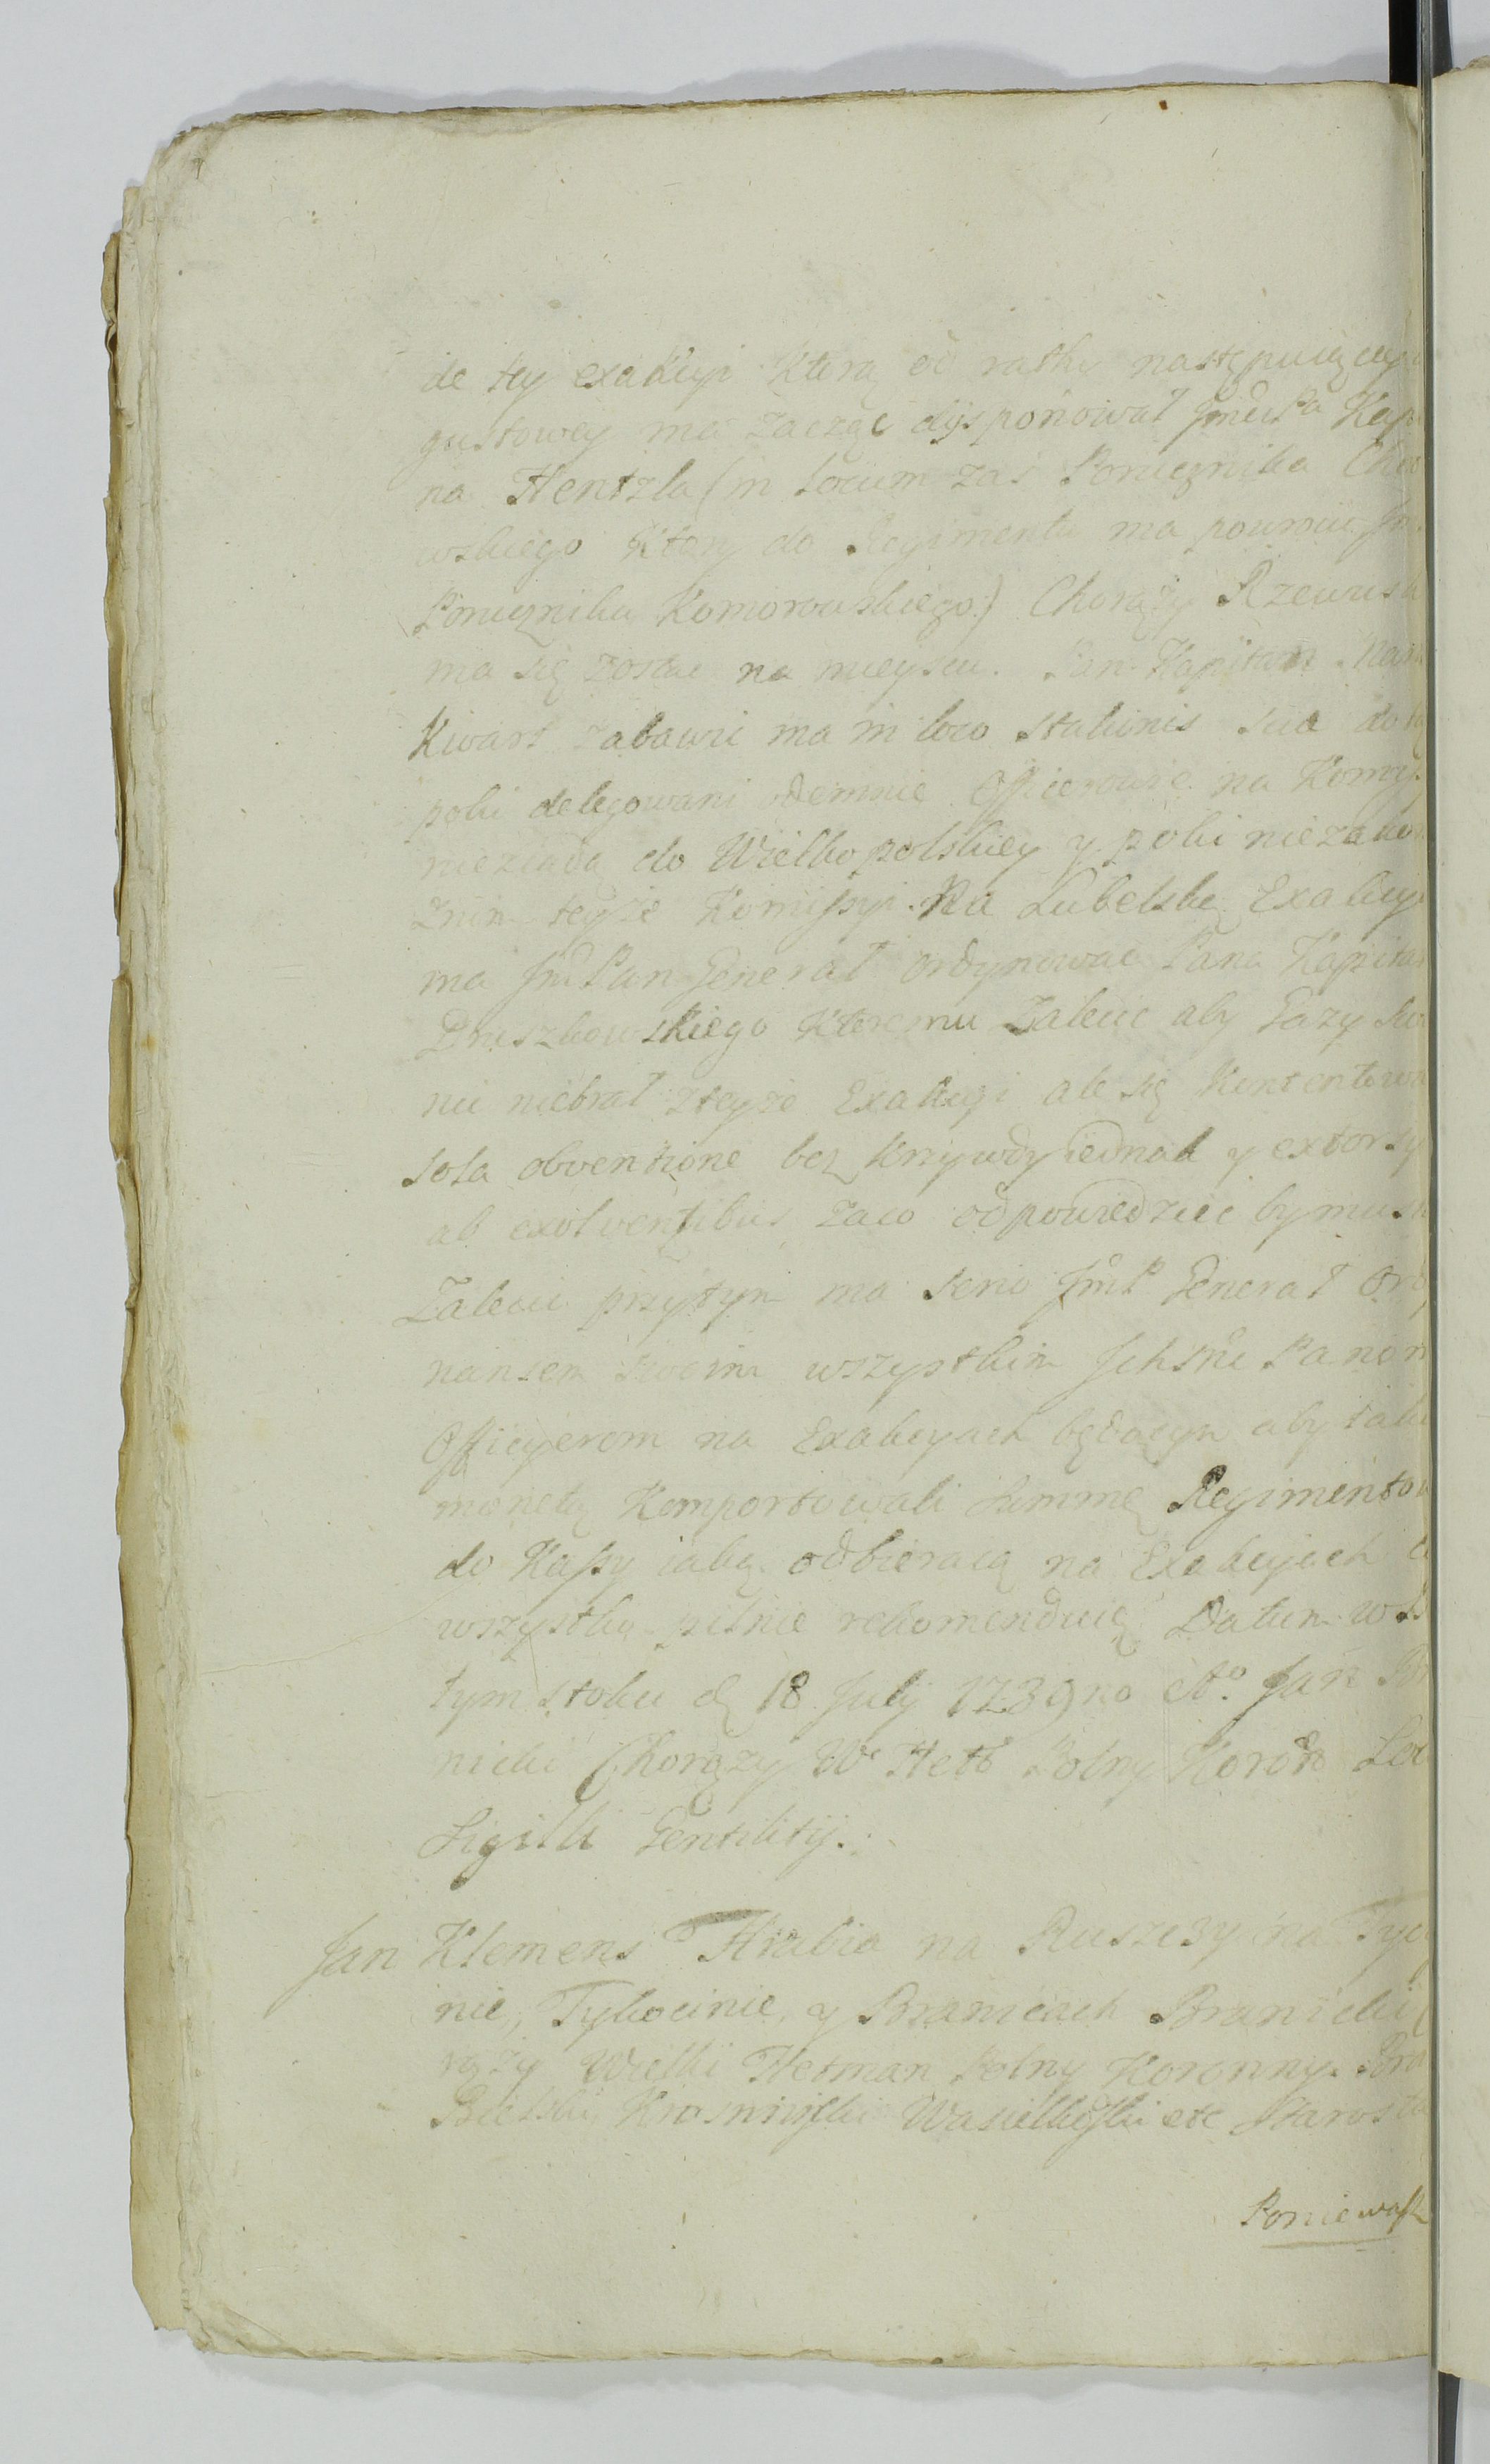 de tey exakcyi ktorą od ratky następuiącey
gustowey ma zacząc dysponował Jmci Pa Kap
na Hentzla (in locum zas Porucznika
wskiego ktory do Regimentu ma powrucic
Porucznika Komorowskiego) Chorąży Rzewusk
ma się zostac na mieyscu. Pan Kapitan
Kwart zabawic ma in loco stationis sua
poki delegowani odemnie Officerowie na Komis
nieziadą do Wielkopolskiey y poki niezakon
teyże Komissyi. Na Lubelską Exakcyi
ma Jmć Pan Generał ordynowac Pana Kapitan
Druszkowskiego ktoremu zaleci aby Gazy
nie niebrał zteyże Exakcyi ale się kontentowa
sola obventione bez krzywdy iednak y extorsy
ab exolventibus zaco odpowiedziec by mus
Zaleci przytym ma serio Jmć P Generał Ord
nansem swoim wszystkim Jchmć Panom
Officyerom na Exakcyach będącym aby taką
monetą komportowali summę Regimentow
do Kassy iaką odbieraią na Exakcyiach
wszystko pilnie rekomenduię Datum w
tymstoku d 18 July 1739no Ao Jan Br
nicki Chorązy W Hett Polny Koron Loc
Sigilli Gentilitij.
Jan Klemens Hrabia na Ruszczy na Tycz
nie, Tykocinie, y Branicach Branicki
rąży Wielki Hetman Polny Koronny. Bra
Bielski, Krosnieński Wasielkowski etc Starosta
Poniewasz